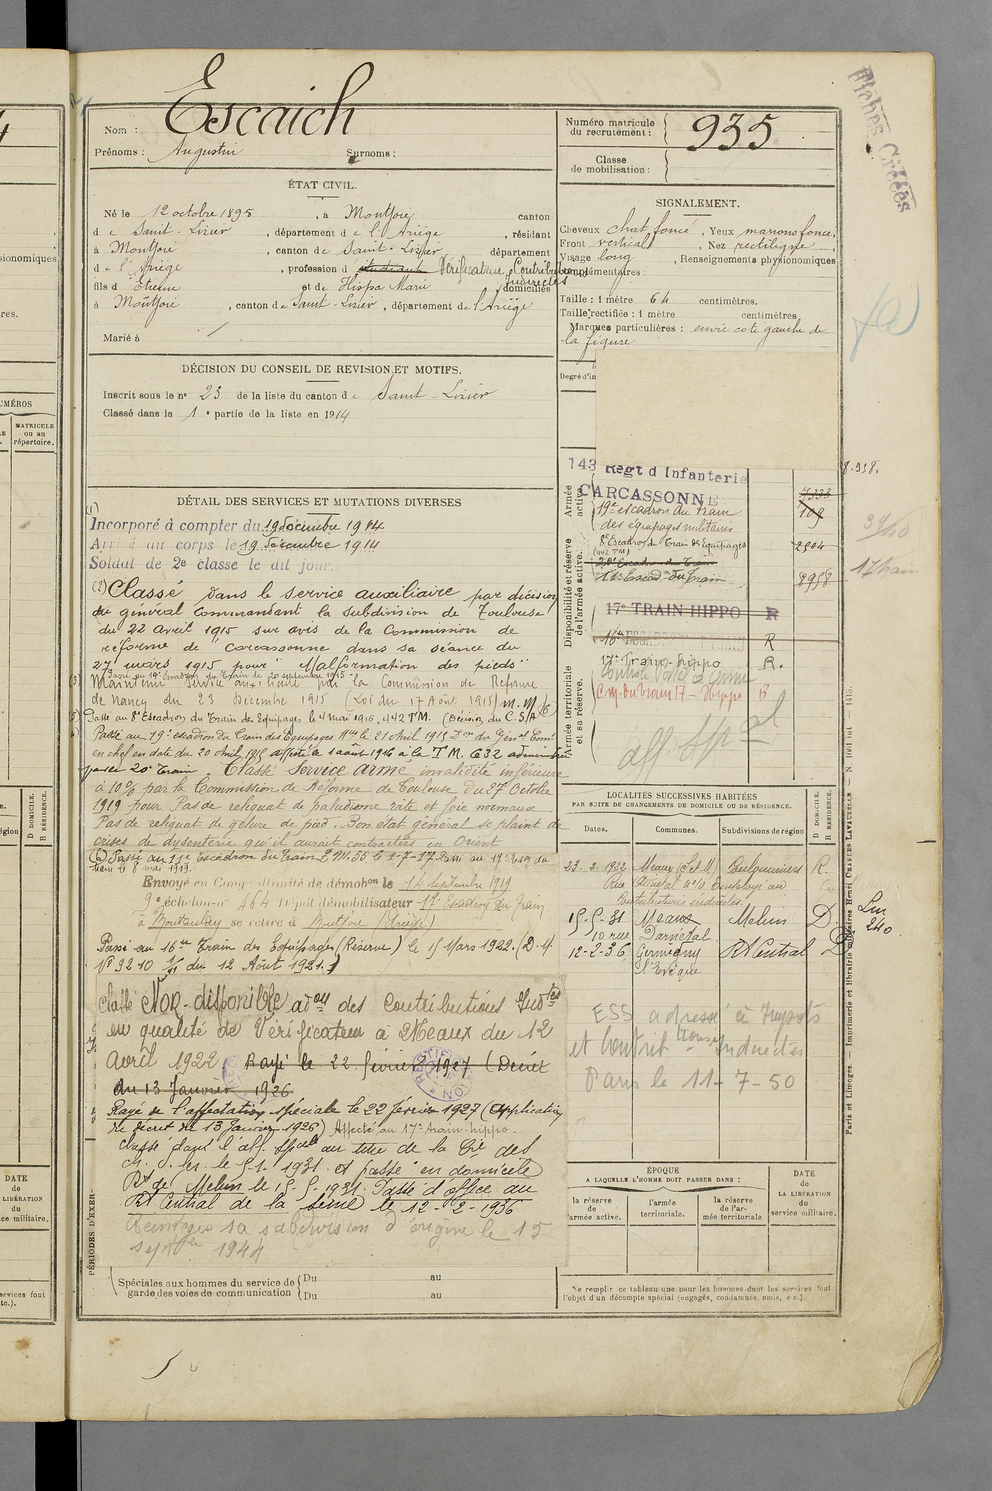 Escaich
Nom :
Prénoms : Augustin Surnoms :
Numéro matricule du recrutement : 935
Classe de mobilisation :
Fiches Créées
ÉTAT CIVIL.
Né le 12 octobre 1895, à Montjoie canton
de Saint-Lizier, département de l'Ariège, résidant
à Montjoie, canton de Saint-Lizier département
de l'Ariège, profession d étudiant Vérificateur Contributions Indirectes
fils d'Etienne et de Hispa Marie domiciliés
à Montjoie, canton de Saint-Lizier, département de l'Ariège
Marié à
SIGNALEMENT.
Cheveux chat foncé, Yeux marrons foncé,
Front vertical, Nez rectiligne,
Visage long, Renseignements physionomiques
complémentaires :
Taille : 1 mètre 64 centimètres.
Taille rectifiée : 1 mètre centimètres
Marques particulières : envie coté gauche de
la figure
Degré d'in
DÉCISION DU CONSEIL DE REVISION ET MOTIFS.
Inscrit sous le n° 23 de la liste du canton de Saint-Lizier
Classé dans la 1e partie de la liste en 1914
DÉTAIL DES SERVICES ET MUTATIONS DIVERSES
(1)
Incorporé à compter du 19 décembre 1914
Arrivé au corps le 19 décembre 1914
Soldat de 2e classe le dit jour.
(2) Classé dans le service auxiliaire par décision
du général Commandant la Subdivision de Toulouse
du 22 avril 1915 sur avis de la Commission de
réforme de Carcassonne dans sa séance du
27 mars 1915 pour "Malformation des pieds"
Passé au 19e Escadron du Train le 20 septembre 1915
Maintenu service auxiliaire par la Commission de Réforme
de Nancy du 23 Décembre 1915 (Loi du 17 Août 1915)
Passé au 8e Escadron du Train des Equipages le 4 mai 1916, 442 T.M. (Décision du C.S./A)
Passé au 19e escadron du Train des Equipages Mres le 21 Avril 1915 Don du Génal Comt
en chef en date du 20 Avril 1915 affecté le 1 août 1916 à la T.M. 632
passée 20e Train. Classé Service armé invalidité inférieure
à 10% par la Commission de Réforme de Toulouse du 27 Octobre
1919 pour Pas de reliquat de paludisme rate et foie normaux
Pas de reliquat de gelure de pied. Bon état général se plaint de
crises de dysenterie qu'il aurait contractées en Orient
Passé au 11e Escadron du Train T.M. 56 le 1-7-17 Passé au 17e Escon du
train le 8 mai 1919.
Envoyé en Congé illimité de démobon le 14 septembre 1919
9e échelon n° 464 Dépôt démobilisateur 17e Escadron du train
à Montauban se retire à Montjoie (Ariège)
Passé au 16e Train des Equipages (Réserve) le 5 Mars 1922. (D.M.
N° 9210 1/11 du 12 Août 1921.)
Classé Non-disponible adon des Contributions Indtes
en qualité de Vérificateur à Meaux du 12
avril 1922 Rayé le 22 février 1927 (Décret
du 13 Janvier 1926
Rayé de l'affectation spéciale le 22 février 1927 (Application
du décret du 13 Janvier 1926) Affecté au 17e train-hippo.
Classé dans l'aff. spéciale au titre de la
le 5.1.1931 et passé en domicile
Rt de Melun le 15.5.1931. Passé d'office au
Rt Central de la Seine le 12-2-1936
Réintégré sa subdivision d'origine le 15
septbre 1944
PÉRIODES D'EXER-
Spéciales aux hommes du service de garde des voies de communication
Du au
Du au
Armée active
143 Régt d'Infanterie
CARCASSONNE
19e escadron du train
des équipages militaires 709
8e Escadron du Train des Equipages 2504
(442 TM)
20e Escadron du Train
11e Escadn du Train 8958
Disponibilité et réserve de l'armée active.
17e TRAIN HIPPO R
16e R
17e Train-hippo R.
Cm. du train 17 - Hippo
Armée territoriale et sa réserve.
aff spal
39/40
17 train
LOCALITÉS SUCCESSIVES HABITÉES
PAR SUITE DE CHANGEMENTS DE DOMICILE OU DE RÉSIDENCE.
Dates. Communes. Subdivisions de région D DOMICILE. R RÉSIDENCE.
23.2.1922 Meaux (S et M) Coulommiers R.
Employé au
Contributions indirectes.
15-5-31 Meaux Melun D
10 rue Darnetal
12-2-36 Germigny Rt Central D
l'Evêque
Lm 240
ESS adressé à Impots
et Contrib tions Indirectes
Paris le 11-7-50
ÉPOQUE
A LAQUELLE L'HOMME DOIT PASSER DANS :
la réserve de l'armée active.
l'armée territoriale.
la réserve de l'armée territoriale
DATE de LA LIBÉRATION du service militaire.
Ne remplir ce tableau que pour les hommes dont les services font
l'objet d'un décompte spécial (engagés, condamnés, omis, etc.).
Paris et Limoges. — Imprimerie et librairie militaires Henri CHARLES-LAVAUZELLE
NUMÉROS
MATRICULE ou au répertoire.
D DOMICILE. R RÉSIDENCE.
DATE de LA LIBÉRATION